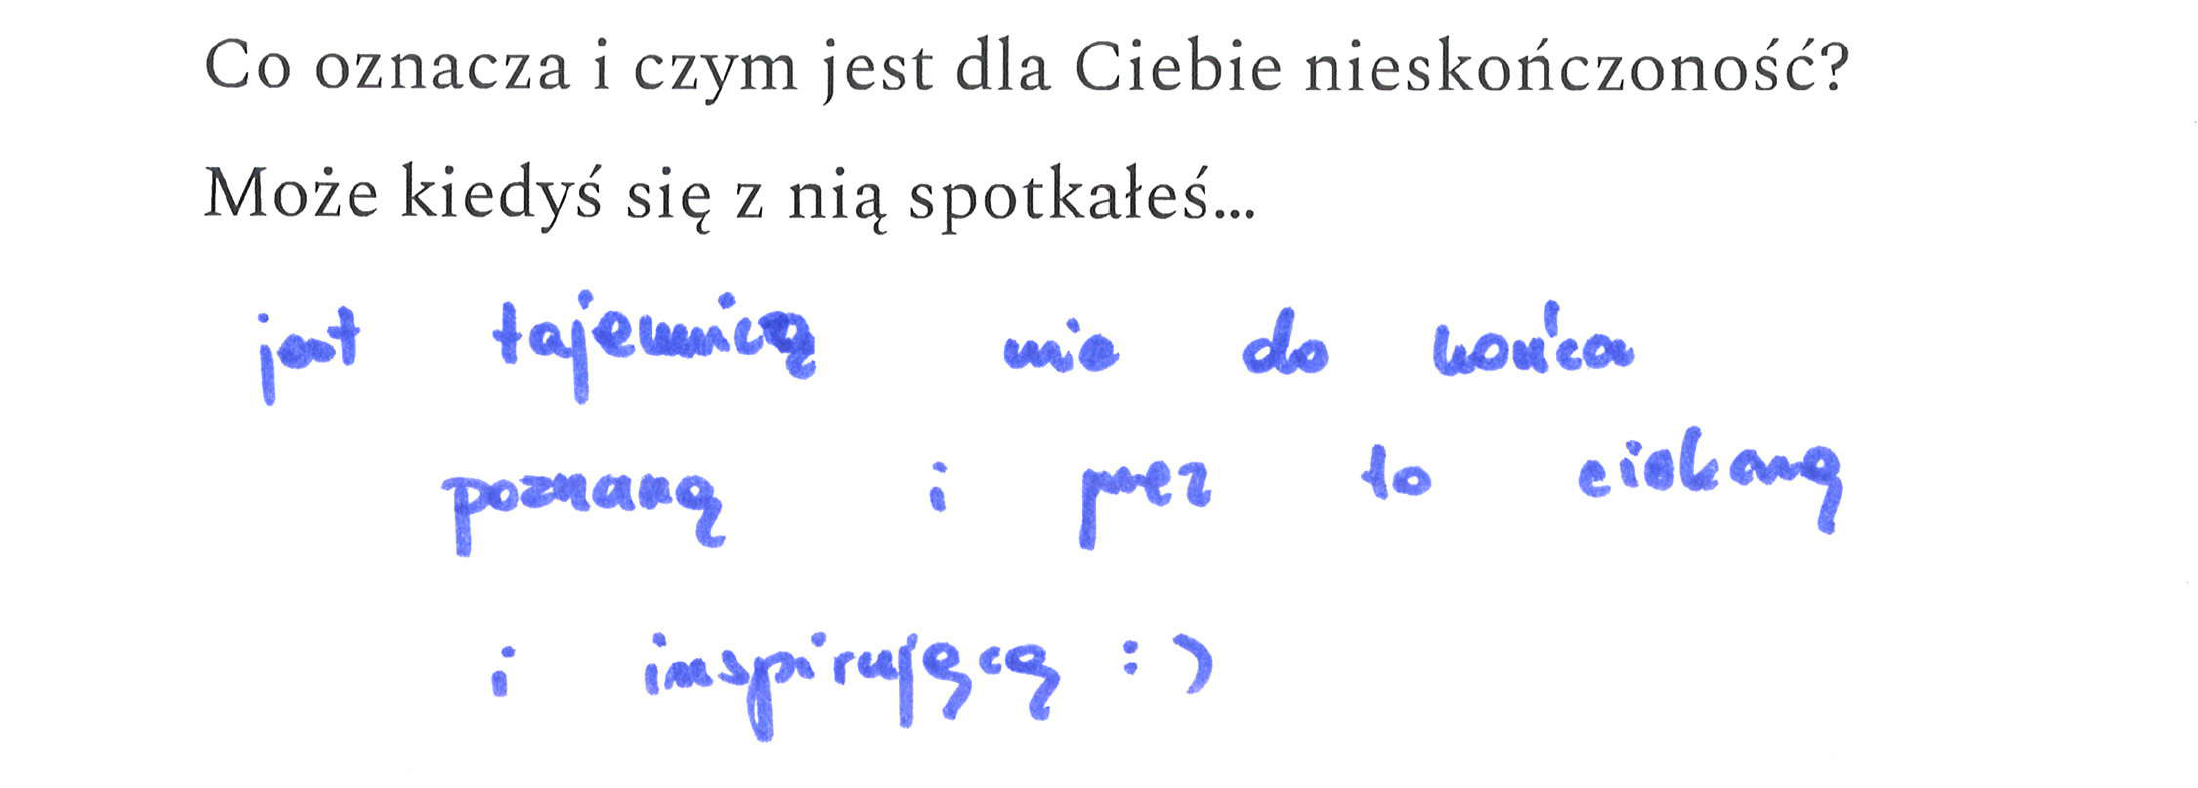 Co oznacza i czym jest dla Ciebie nieskończoność?
Może kiedyś się z nią spotkałeś...
jest tajemnicą nie do końca
poznaną i przez to ciekawą
i inspirującą :)